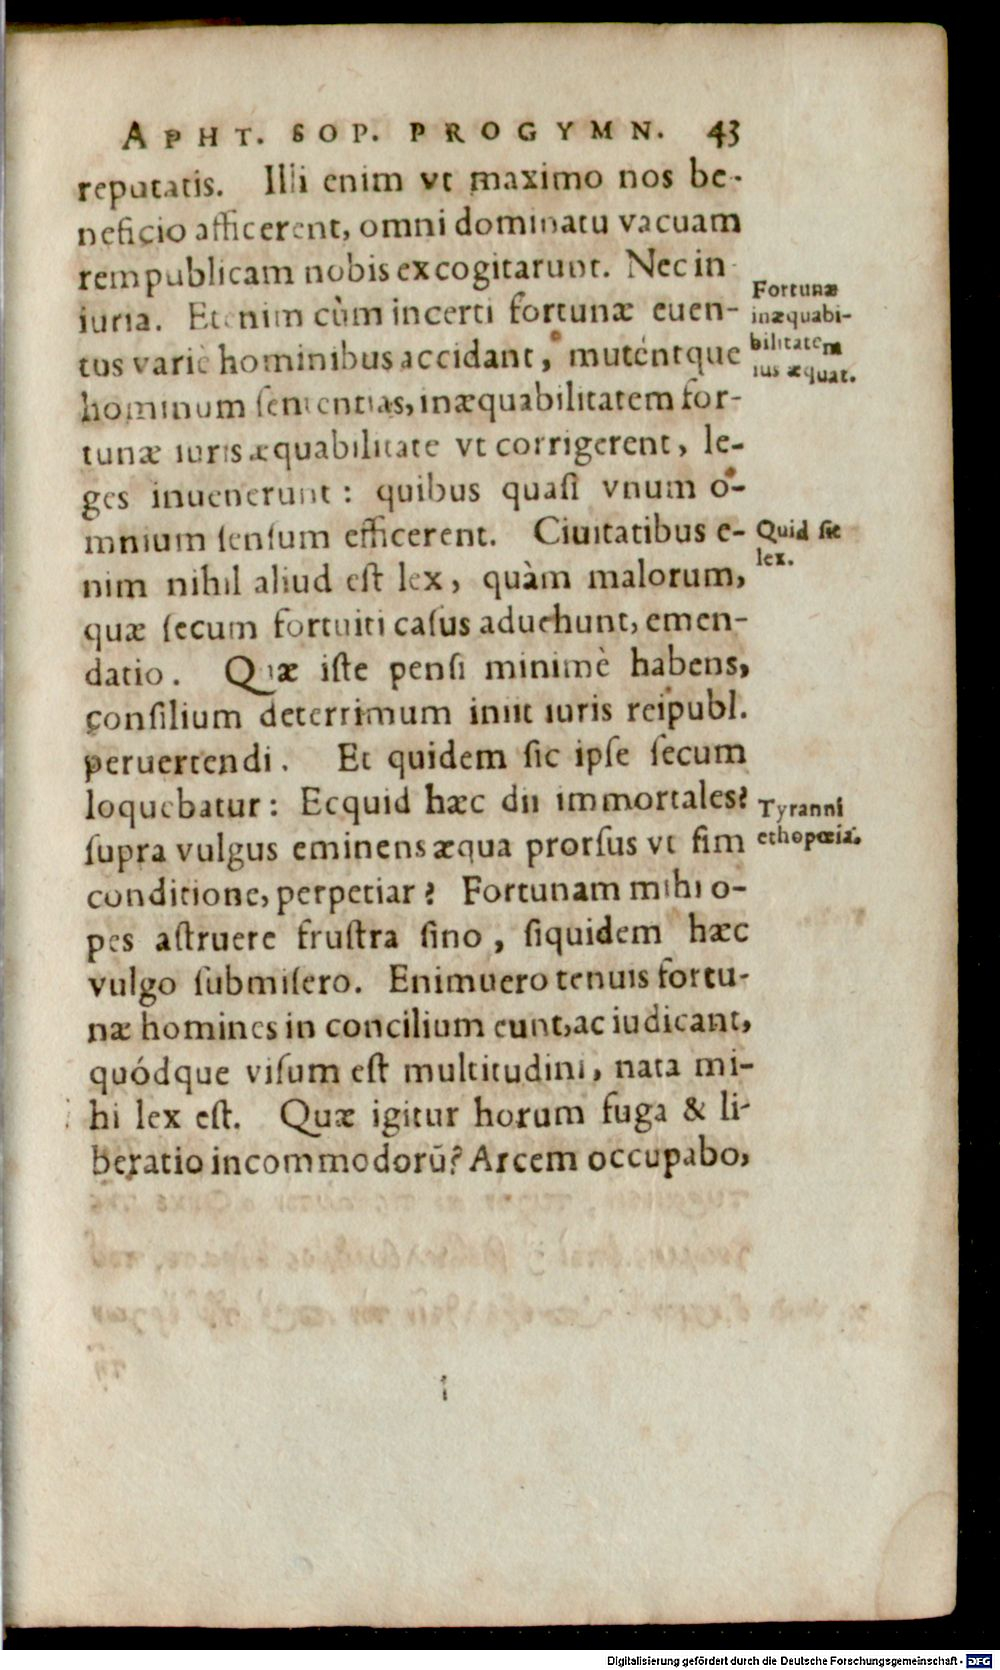 APHT. SOP. PROGYMN. 43
reputatis. Illi enim vt maximo nos be-
neficio afficerent, omni dominatu vacuam
rempublicam nobis excogitarunt. Nec in
iuria. Etenim cùm incerti fortunæ euen-
tus variè hominibus accidant, muténtque
hominum sententias, inæquabilitatem for-
tunæ iuris æquabilitate vt corrigerent, le-
ges inuenerunt: quibus quasi vnum o-
mnium sensum efficerent. Ciuitatibus e-
nim nihil aliud est lex, quàm malorum,
quæ secum fortuiti casus aduehunt, emen-
datio. Quæ iste pensi minimè habens,
consilium deterrimum iniit iuris reipubl.
peruertendi. Et quidem sic ipse secum
loquebatur: Ecquid hæc dii immortales?
supra vulgus eminens æqua prorsus vt sim
conditione, perpetiar? Fortunam mihi o-
pes astruere frustra sino, siquidem hæc
vulgo submisero. Enimuero tenuis fortu-
næ homines in concilium eunt, ac iudicant,
quódque visum est multitudini, nata mi-
hi lex est. Quæ igitur horum fuga & li-
beratio incommodorū? Arcem occupabo,
Fortunæ
inæquabi-
bilitatem
ius æquat.
Quid sit
lex.
Tyranni
ethopœia.
Digitalisierung gefördert durch die Deutsche Forschungsgemeinschaft - DFG